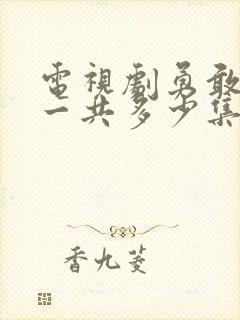 電視劇勇敢
一共多少集
香九菱